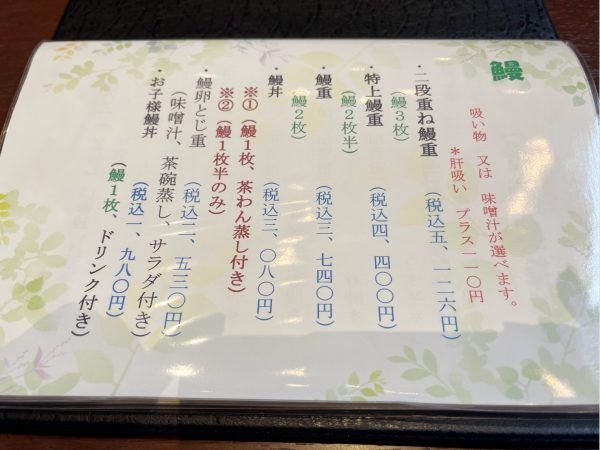 鰻
吸い物 又は 味噌汁が選べます。
*肝吸い プラス一一〇円
・二段重ね鰻重
(鰻3枚) (税込五、一二六円)
・特上鰻重
(鰻2枚半) (税込四、四〇〇円)
・鰻重
(鰻2枚) (税込三、七四〇円)
・鰻丼
(税込三、〇八〇円)
※① (鰻1枚、茶わん蒸し付き)
※② (鰻1枚半のみ)
・鰻卵とじ重
(税込二、五三〇円)
(味噌汁、茶碗蒸し、サラダ付き)
・お子様鰻丼
(税込一、九八〇円)
(鰻1枚、ドリンク付き)